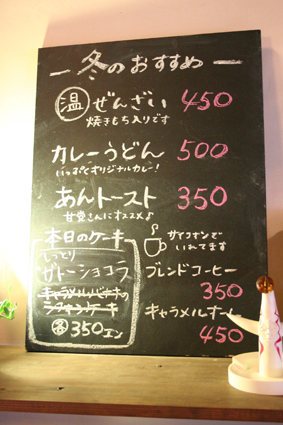 冬のおすすめ
温 ぜんざい 450
焼きもち入りです
カレーうどん 500
オリジナルカレー!
あんトースト 350
甘党さんにオススメ♪
本日のケーキ
しっとり
ガトーショコラ
キャラメルバナナの
シフォンケーキ
各350エン
サイフォンで
いれてます
ブレンドコーヒー
350
キャラメルオーレ
450